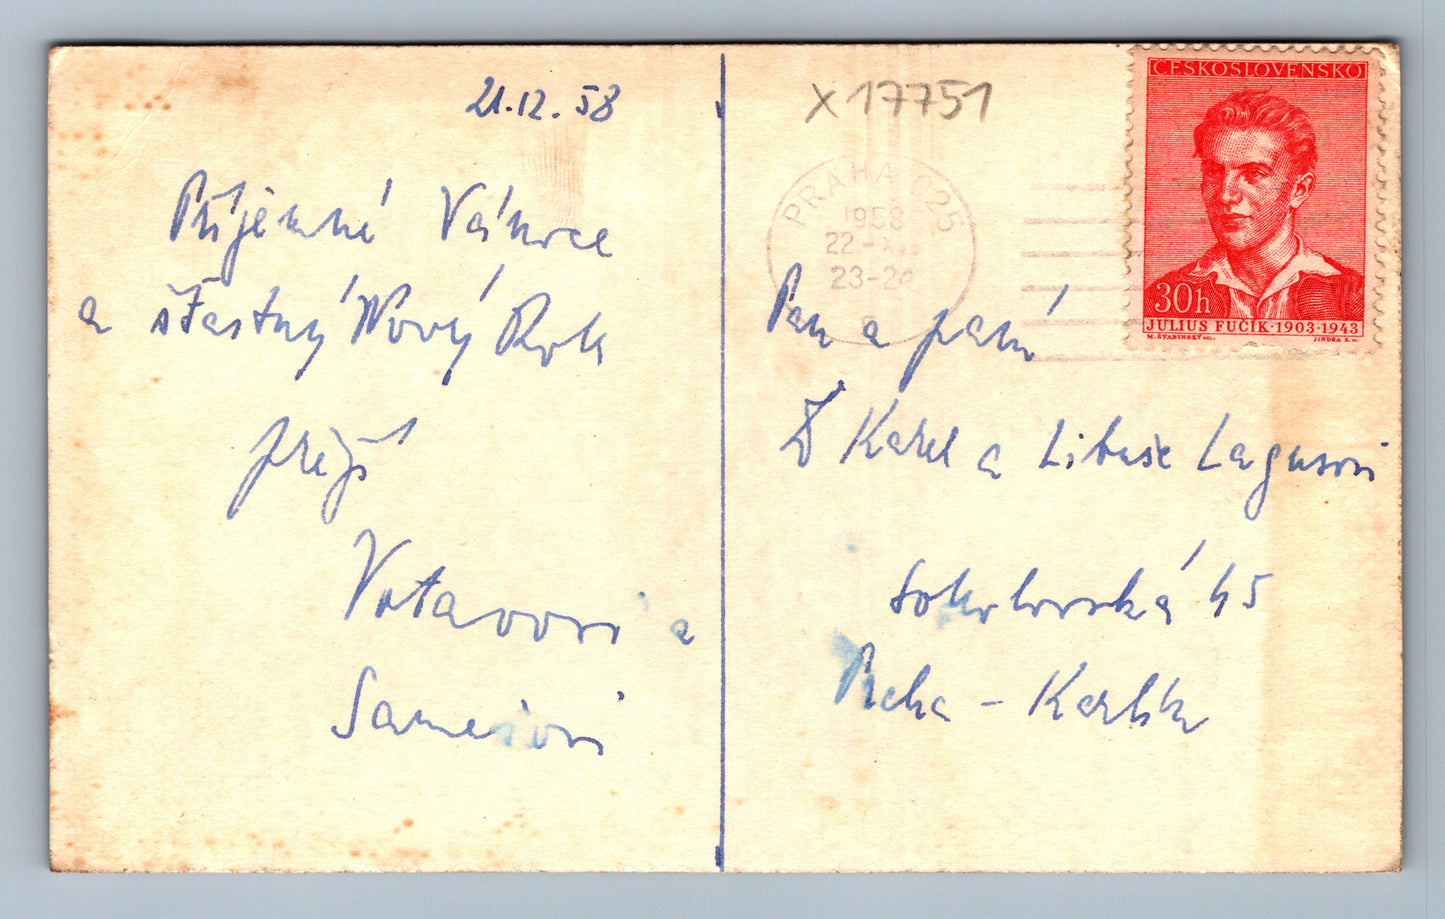 21.12.58
Příjemné Vánoce
a šťastný Nový Rok
přejí
Votavovi a
X 17751
PRAHA 025
1958
22-XII
23-24
ČESKOSLOVENSKO
30h
JULIUS FUČÍK·1903·1943
M. ŠVABINSKÝ DEL.
JINDRA S. SC.
Pan a paní
Karel a Libuše Lagusovi
Sokolovská 45
Praha - Karlín